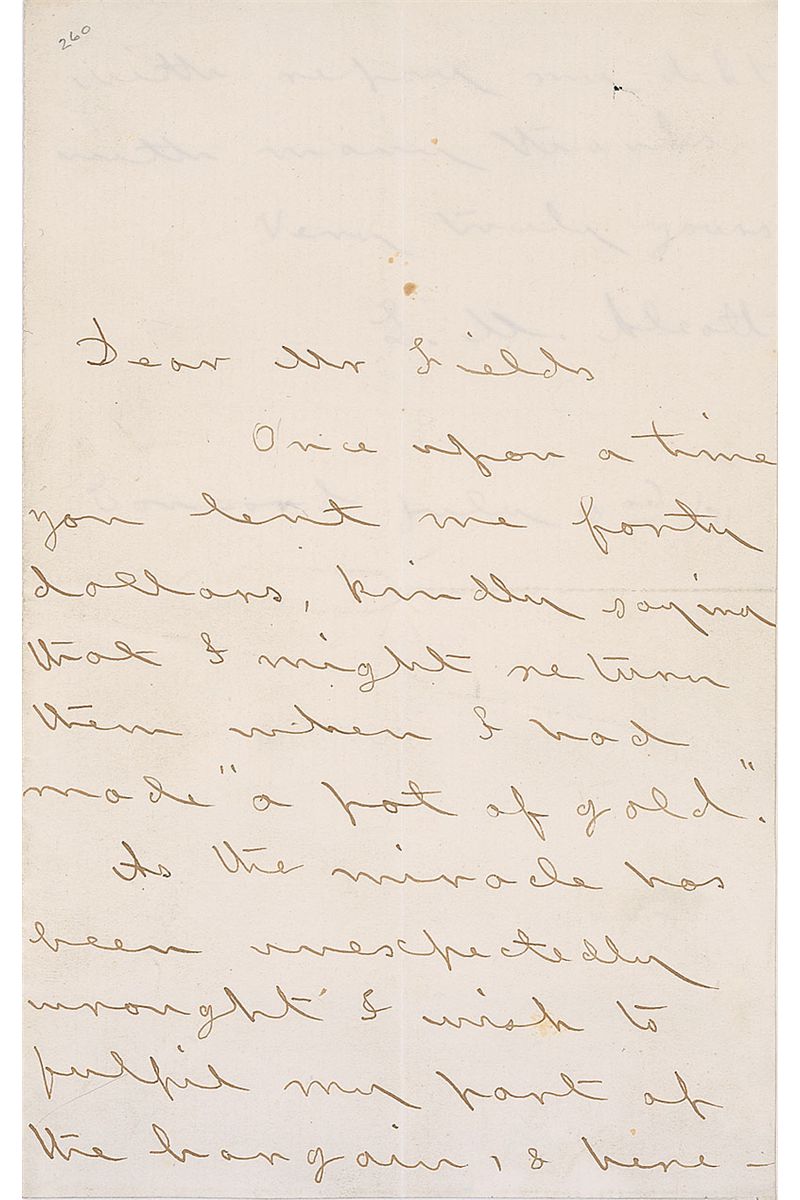 260
Dear Mr Fields
Once upon a time
you lent me forty
dollars, kindly saying
that I might return
them when I had
made "a pot of gold".
As the miracle has
been unexpectedly
wrought I wish to
fulfil my part of
the bargain, & here -